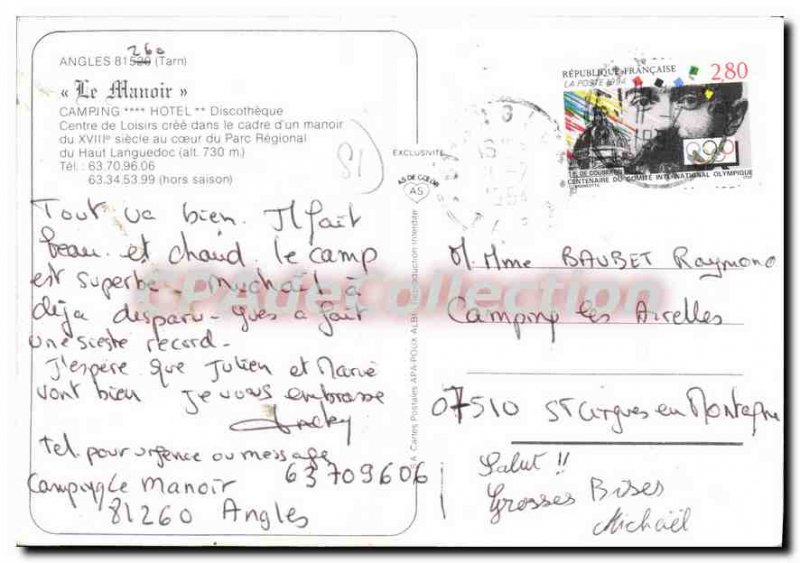 ANGLES 81520 (Tarn)
260
« Le Manoir »
CAMPING **** HOTEL ** Discothèque
Centre de Loisirs créé dans le cadre d'un manoir
du XVIIIe siècle au cœur du Parc Régional
du Haut Languedoc (alt. 730 m.)
Tél. : 63.70.96.06
63.34.53.99 (hors saison)
81
Tout va bien. Il fait
beau et chaud. le camp
est superbe. Michaël à
déja disparu. Yves a fait
une sieste record.
J'espère que Julien et Marie
vont bien je vous embrasse
tel. pour urgence ou message
63709606
Camping le Manoir
81260 Angles
EXCLUSIVITÉ
AS DE CŒUR
AS
Cartes Postales APA-POUX ALBI Reproduction interdite
RÉPUBLIQUE FRANÇAISE
2,80
LA POSTE 1994
P. DE COUBERTIN
CENTENAIRE DU COMITÉ INTERNATIONAL OLYMPIQUE
M. Mme BAUBET Raymond
Camping les Airelles
07510 St Cirgues en Montagne
Salut !!
Grosses Bises
Michaël
CPAdeCollection